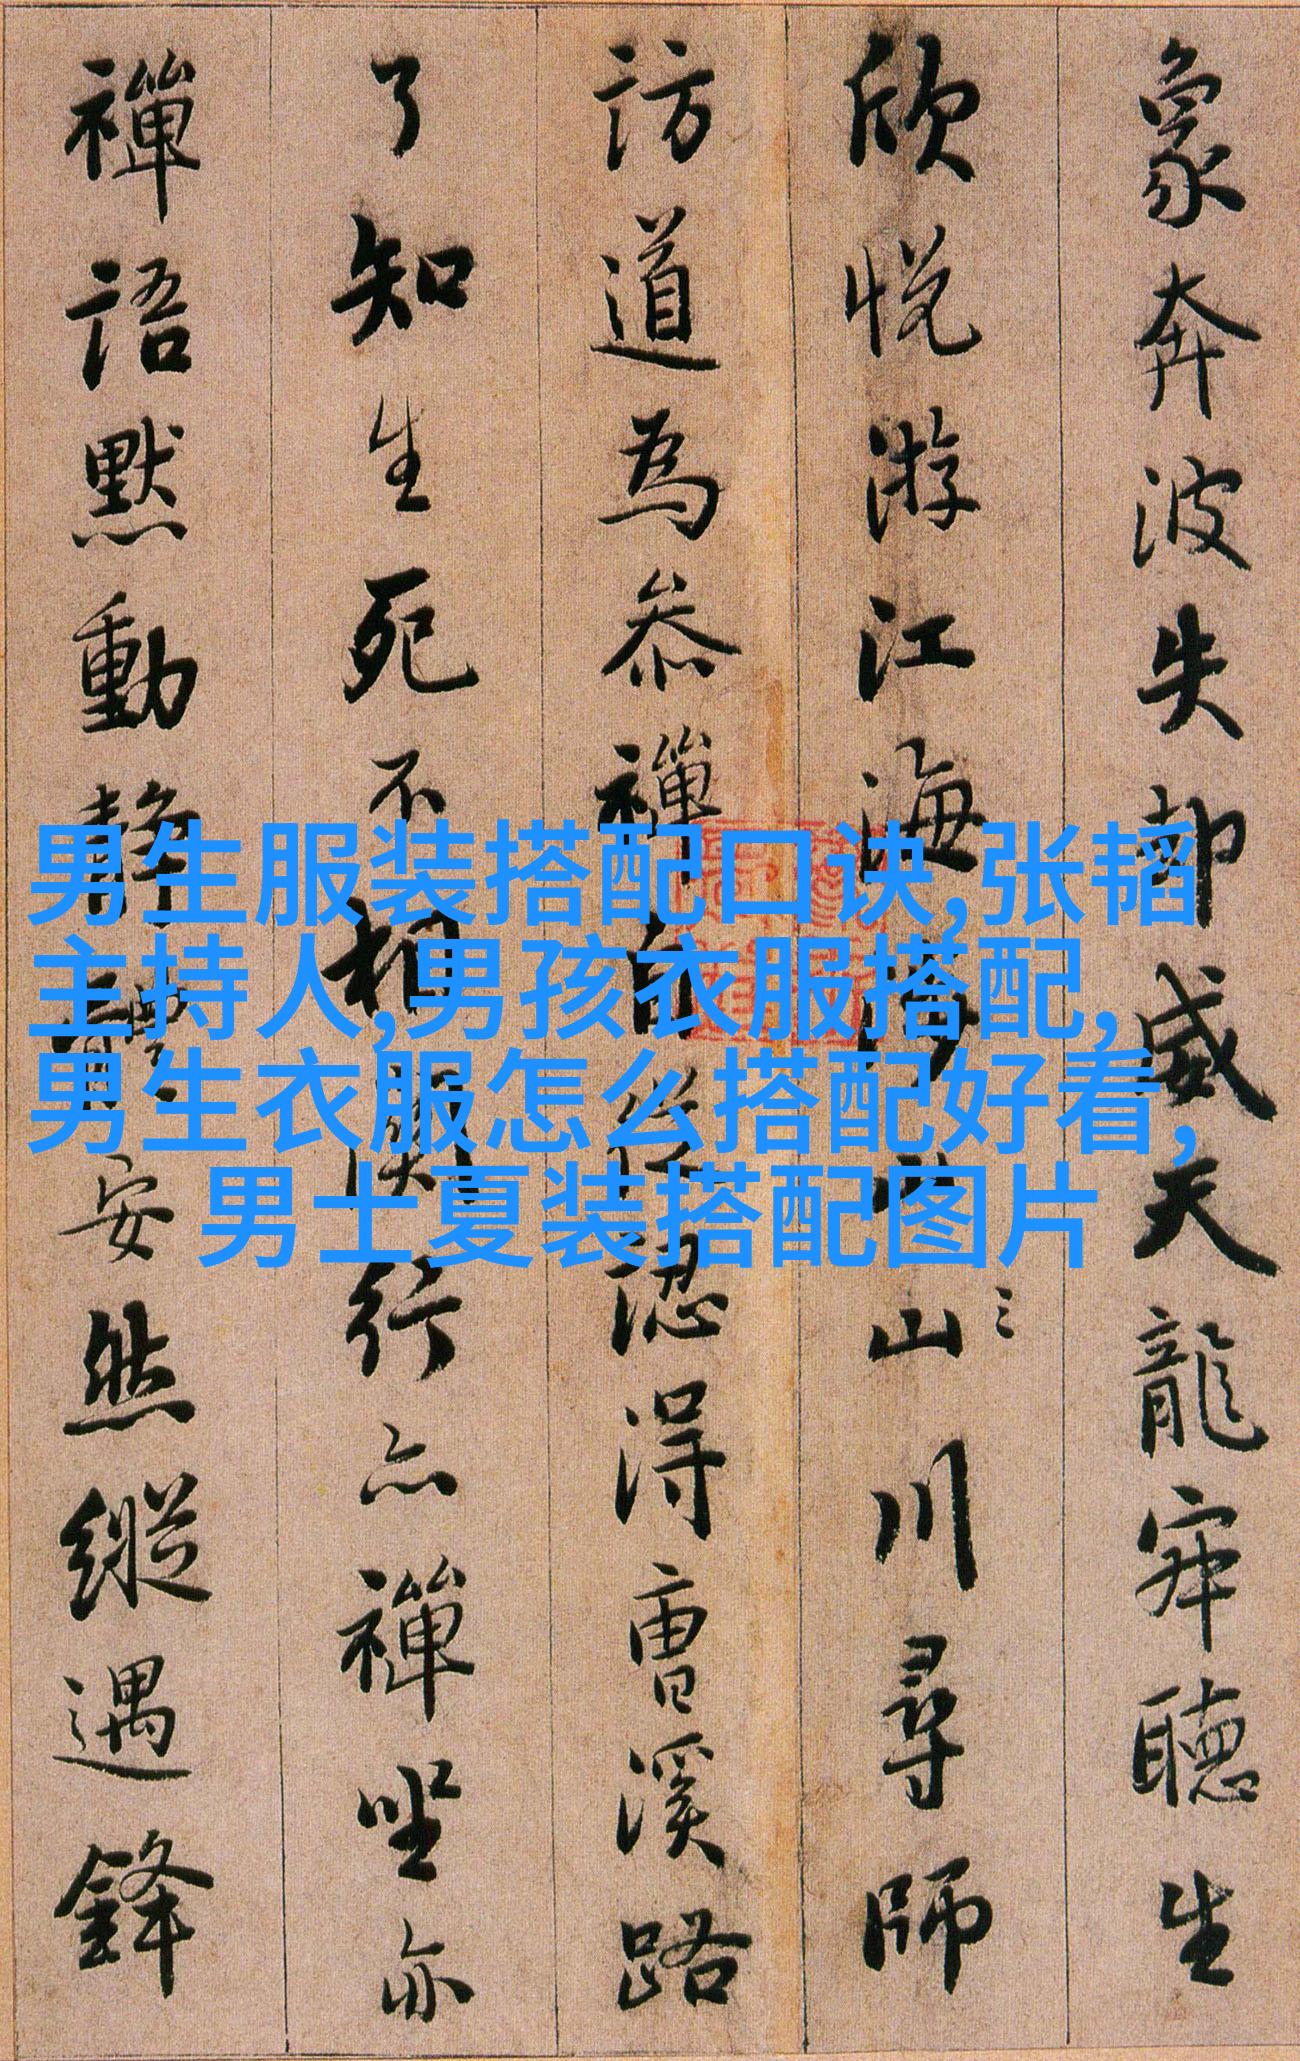 象奔波失却威天龍寂聽生
欣悅游江海涉山川尋師
訪道為叅禪自從認得曹溪路
了知生死不相關行亦禪坐亦
禪語默動靜體安然縱遇鋒
男生服装搭配口诀,张韬
主持人,男孩衣服搭配,
男生衣服怎么搭配好看,
男士夏装搭配图片